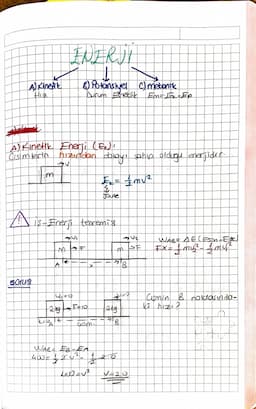 ENERJİ
A) Kinetik B) Potansiyel C) mekanik
Hız Durum Esneklik Em=Ek+Ep
A) Kinetik Enerji (Ek):
Cisimlerin hızından dolayı sahip olduğu enerjidir.
m V
Ek = 1/2 mv²
Joule
İş-Enerji teoremi:
m F m F
A x B
Wnet = ΔE (Eson-Eilk)
F.x = 1/2 mv² - 1/2 mv²
SORU
2kg F=10 2kg
B
Cismin B noktasında-
ki hızı?
Wnet = EB-EA
400 = 1/2 2 v² - 1/2 2 0
400=v² V=20